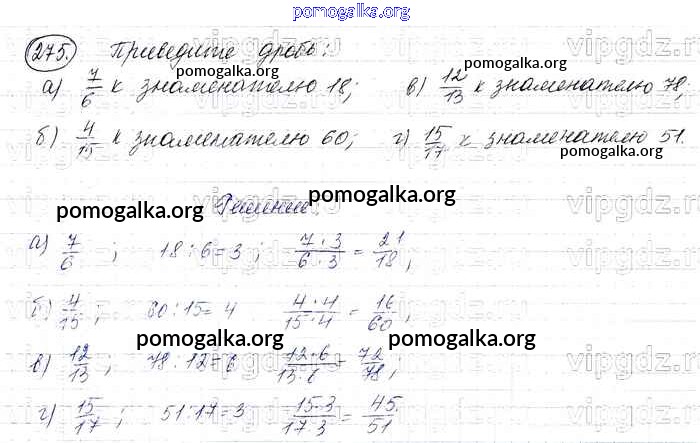 pomogalka.org
275. Приведите дробь:
а) 7/6 к знаменателю 18; в) 12/13 к знаменателю 78;
pomogalka.org pomogalka.org
б) 4/15 к знаменателю 60; г) 15/17 к знаменателю 51.
pomogalka.org pomogalka.org
Решение:
pomogalka.org pomogalka.org
а) 7/6; 18:6=3; 7·3/6·3 = 21/18;
б) 4/15; 60:15=4 4·4/15·4 = 16/60;
pomogalka.org pomogalka.org
в) 12/13; 78:12=6 12·6/13·6 = 72/78;
г) 15/17; 51:17=3 15·3/17·3 = 45/51
vipgdz.ru